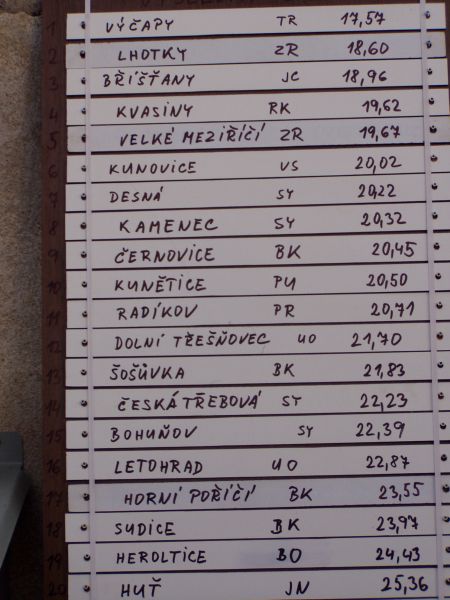 1 VÝČAPY TR 17,57
2 LHOTKY ZR 18,60
3 BŘÍŠŤANY JC 18,96
4 KVASINY RK 19,62
5 VELKÉ MEZIŘÍČÍ ZR 19,67
6 KUNOVICE VS 20,02
7 DESNÁ SY 20,22
8 KAMENEC SY 20,32
9 ČERNOVICE BK 20,45
10 KUNĚTICE PU 20,50
11 RADÍKOV PR 20,71
12 DOLNÍ TŘEŠŇOVEC UO 21,70
13 ŠOŠŮVKA BK 21,83
14 ČESKÁ TŘEBOVÁ SY 22,23
15 BOHUŇOV SY 22,39
16 LETOHRAD UO 22,87
17 HORNÍ POŘÍČÍ BK 23,55
18 SUDICE BK 23,97
19 HEROLTICE BO 24,43
20 HUŤ JN 25,36